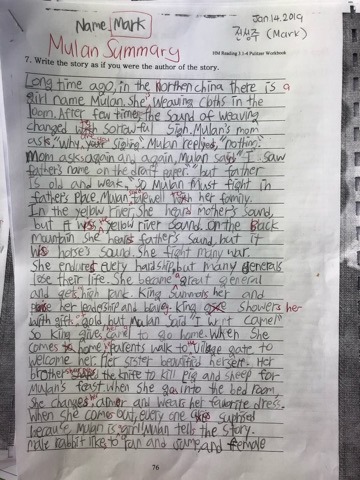 Name Mark
Jan.14.2019
전성주 (Mark)
Mulan Summary
HM Reading 3 1-4 Pulitzer Workbook
7. Write the story as if you were the author of the story.
Long time ago, in the Northern china there is a
girl name Mulan. She weaving cloths in the
room. After few times, the sound of weaving
changed sorrowful sigh. Mulan's mom
ask "why, you sighing" Mulan replyed, "nothing."
Mom asks again and again, Mulan said "I saw
father's name on the draft paper." but father
is old and weak." So Mulan must fight in
father's place. Mulan farewell her family.
In the yellow River, She heard mother's sound,
but it was yellow river sound. On the Back
Mountain she hears father's sound, but it
was horse's sound. She fight many war.
She endures every hardship, but many generals
lose their life. She became a great general
and gets high rank. King summons her and
her leadership and bravery. King showers her
with gifts, gold but Mulan said "I wnt camel"
So king gives camel to go home. When she
comes home, parents walk to village gate to
welcome her. Her sister beautified herself. Her
brother the knife to kill pig and sheep for
Mulan's feast when she go in the bed room,
She changes armor and wears her favorite dress.
when she comes out, every one suprised
because Mulan is girl. Mulan tells the story.
male rabbit like to run and jump, and female
76